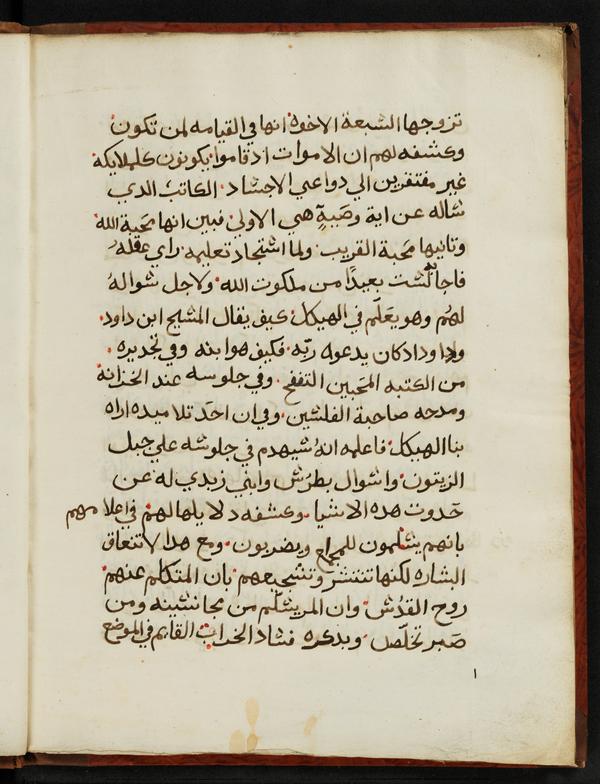 تزوجها الشبعة الاخوه انها في القيامه لمن تكون
وكشفه لهم ان الاموات اذ قاموا يكونون كلملايكة
غير مفتقرين الي دواعي الاجشاد. الكاتب الدي
شاله عن اية وصَيةٍ هي الاولي. فبين انها محَبة الله
وتانيها محَبة القريب. ولما اشتجاد تعليمه. راي عقلهُ
فاجابه لشت بعيدًا من ملكوت الله. ولاجل شوالهُ
لهُم وهو يعَلّم في الهيكل. كيف يقال المشيح ابن داود.
واداود ادكان يدعوه ربّه. فكيف هو ابنه وفي تحديره.
من الكتبه المحَبين التفخ. وفي جلوسه عند الخزانة
ومدحه صاحبة الفلشين. وفي ان احَد تلاميده اراه
بنا الهيكل. فاعلمه انهُ شيهدم في جلوشه علي جبل
الزيتون. واشوال بطرُش وابني زبدي له عن
حَدوت هده الاشيا. وكشفه دلايلها لهم. في اعلامهم
بانهم يشَلمون للمجامع ويضربون. ومع هدا لا تتعاق
البشاره لكنها تنتشر وتشجيعهم. بان المتكلم عنهم
روح القدُش. وان المر يشلّم من مجانشينه ومن
صَبر تخلّص. وبدكره فشاد الخراب القايم في الموضع
١